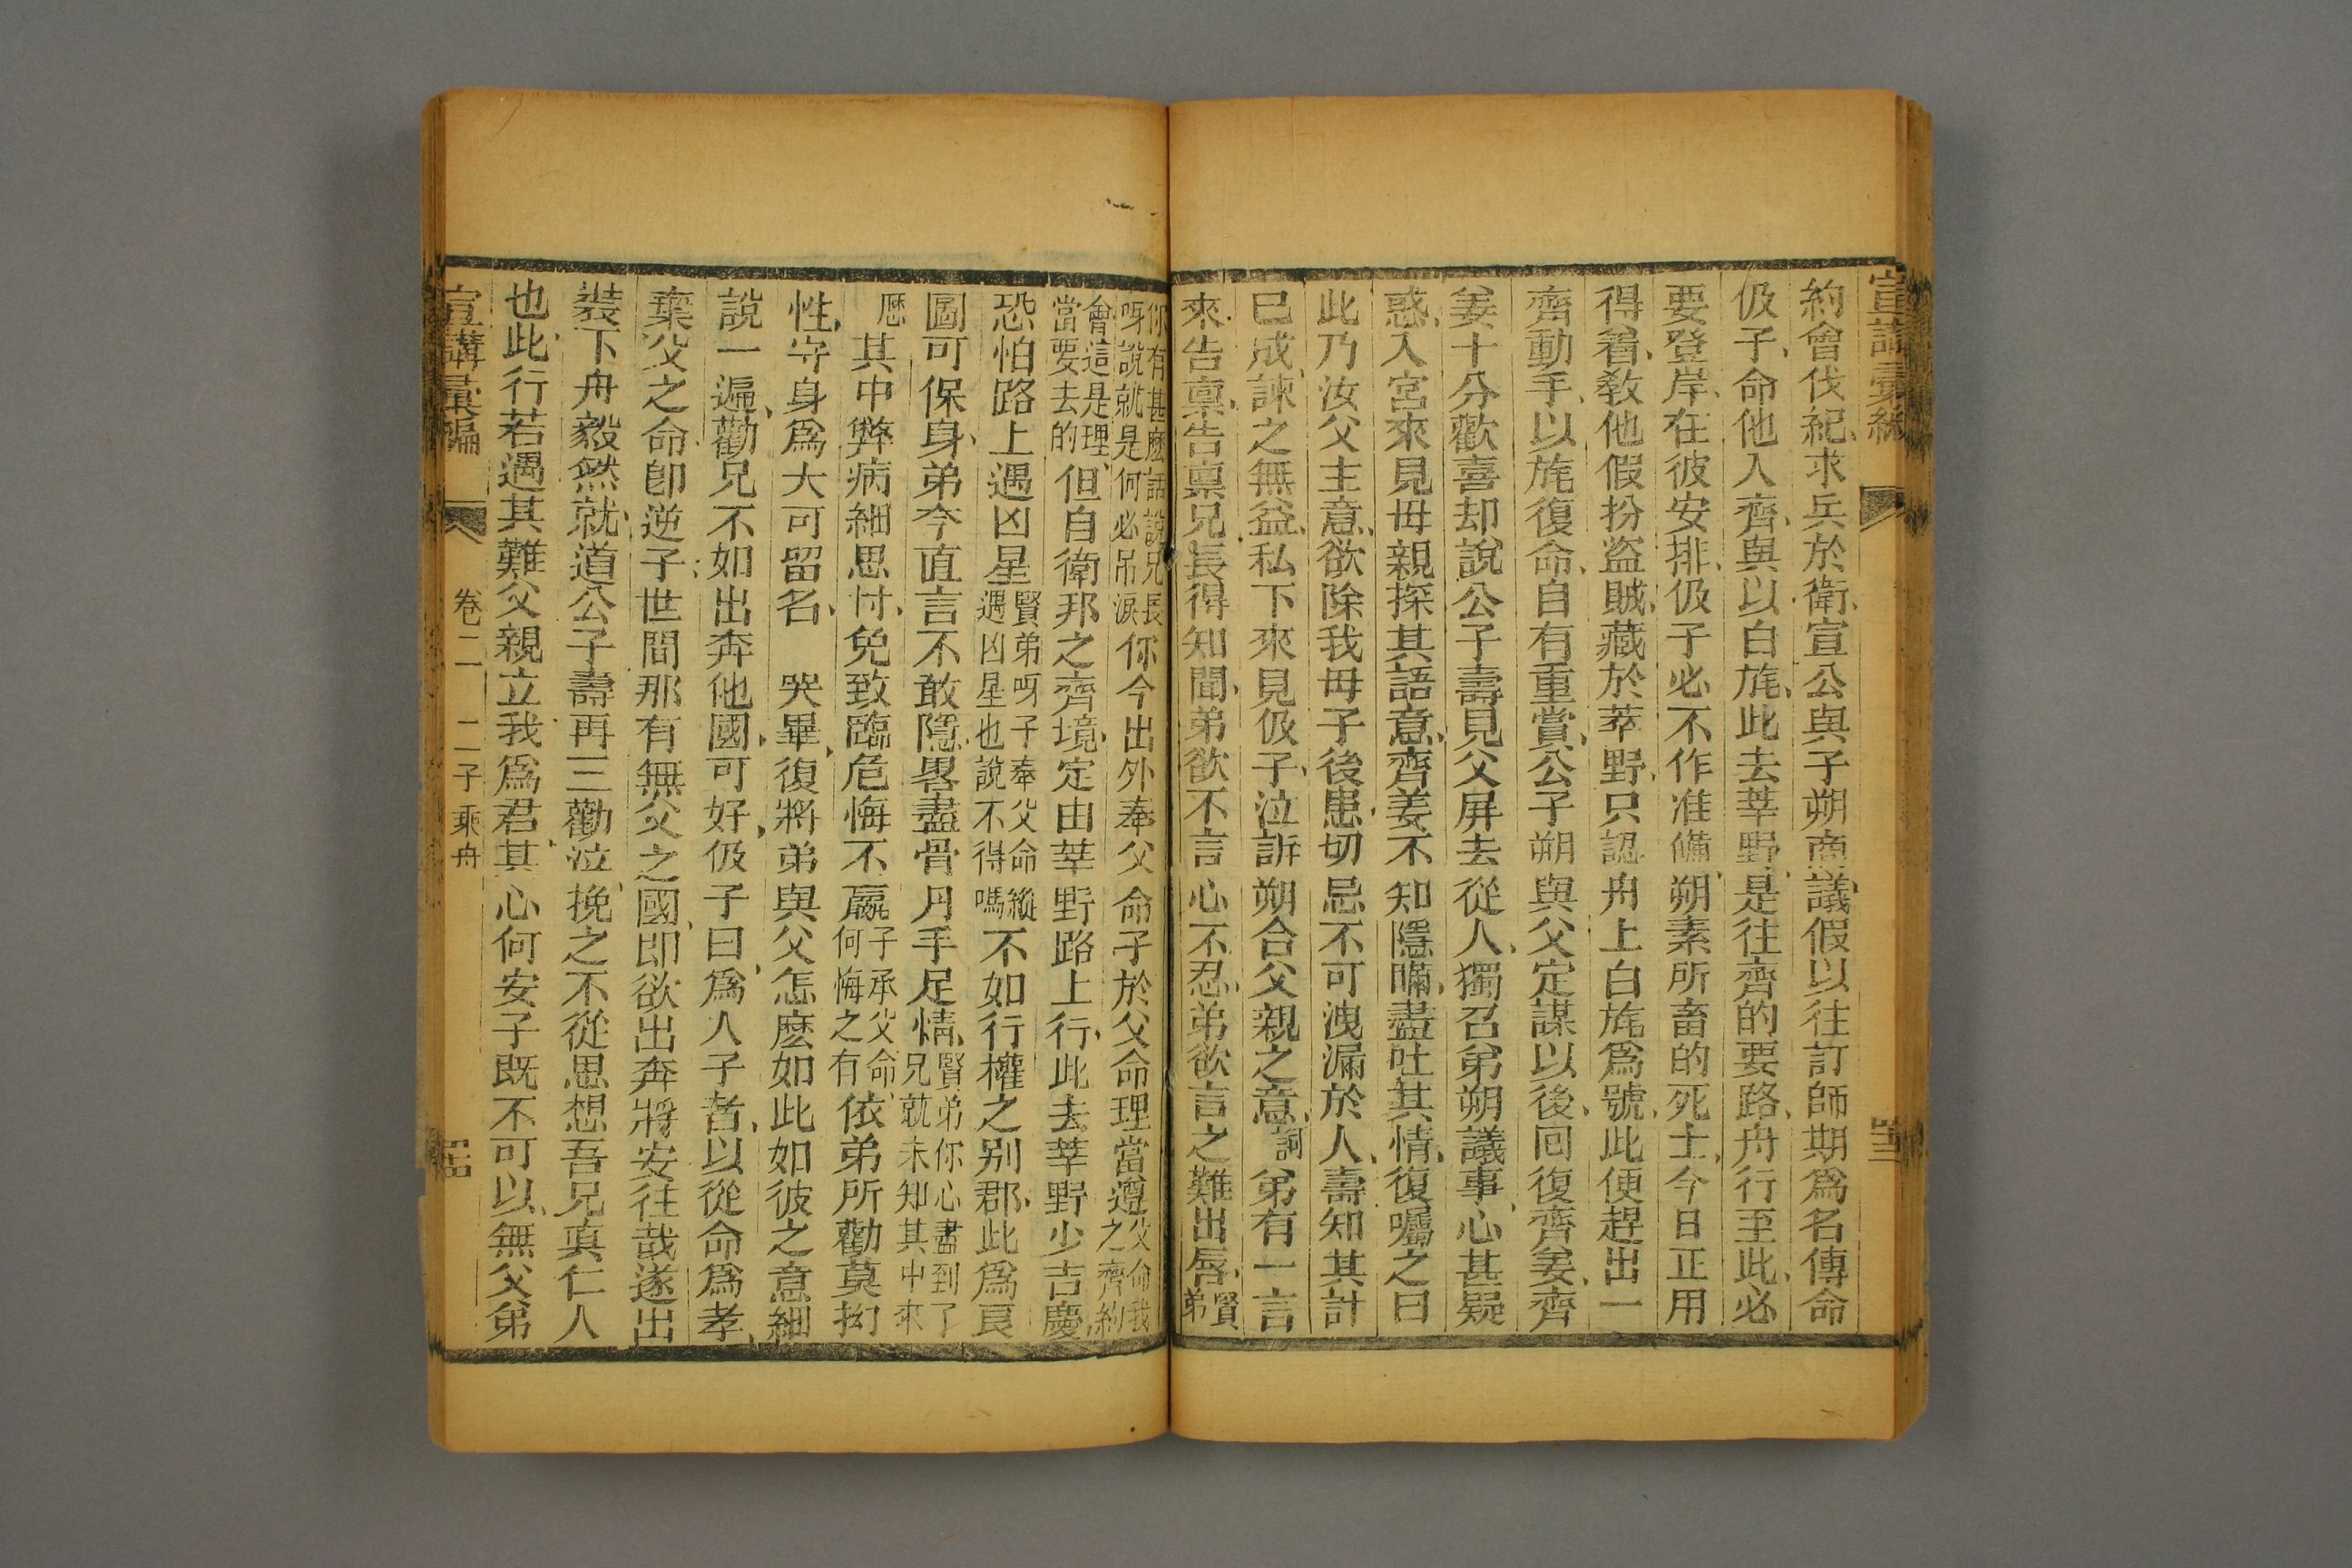 宣講彙編
約會伐紀、求兵於衛、宣公與子朔商議、假以往訂師期爲名傳命
伋子、命他入齊、與以白旄、此去莘野、是往齊的要路、舟行至此、必
要登岸、在彼安排、伋子必不作准備、朔素所畜的死士、今日正用
得着、教他假扮盜賊、藏於莘野、只認舟上白旄爲號、此便趕出一
齊動手、以旄復命、自有重賞、公子朔與父定謀以後、回復齊姜、齊
姜十分歡喜、却說公子壽見父屏去從人、獨召弟朔議事、心甚疑
惑、入宮來見毋親、探其語意、齊姜不知隱瞞、盡吐其情、復囑之曰
此乃汝父主意、欲除我毋子後患、切忌不可洩漏於人、壽知其計
已成、諫之無益、私下來見伋子、泣訴朔合父親之意、詞弟有一言
來告禀、告禀兄長得知聞、弟欲不言心不忍、弟欲言之難出唇、賢弟
你有甚麽話說兄長
呀說就是何必吊淚你今出外奉父命、子於父命理當遵、父命我之齊約
會這是理、
當要去的但自衛邦之齊境、定由莘野路上行、此去莘野少吉慶、
恐怕路上遇凶星、賢弟呀子奉父命縱遇凶星也說不得嗎不如行權之别郡、此爲良
圖可保身、弟今直言不敢隱、畧盡骨月手足情、賢弟你心盡到了兄就未知其中來
歷其中弊病細思忖、免致臨危悔不贏、子承父命、何悔之有依弟所勸莫拗
性、守身爲大可留名、哭畢、復將弟與父怎麽如此如彼之意細
說一遍、勸兄不如出奔他國、可好、伋子曰、爲人子者、以從命爲孝、
棄父之命、卽逆子、世間那有無父之國、即欲出奔、將安往哉、遂出
裝下舟、毅然就道、公子壽再三勸泣、挽之不從、思想吾兄真仁人
也、此行若遇其難、父親立我爲君、其心何安、子既不可以無父、弟
宣講彙編 卷二 二子乘舟